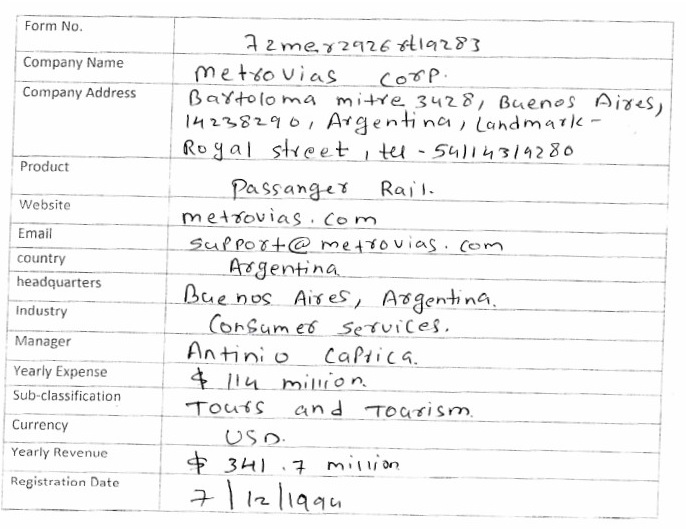 Form No. 72mer2926rt19283
Company Name Metrovias Corp.
Company Address Bartoloma mitre 3428, Buenos Aires,
14238290, Argentina, Landmark-
Royal street, tel - 54114319280
Product Passanger Rail.
Website metrovias.com
Email support@metrovias.com
country Argentina
headquarters Buenos Aires, Argentina.
Industry Consumer Services.
Manager Antinio Caprica.
Yearly Expense $ 114 million.
Sub-classification Tours and Tourism.
Currency USD.
Yearly Revenue $ 341.7 million
Registration Date 7/12/1994